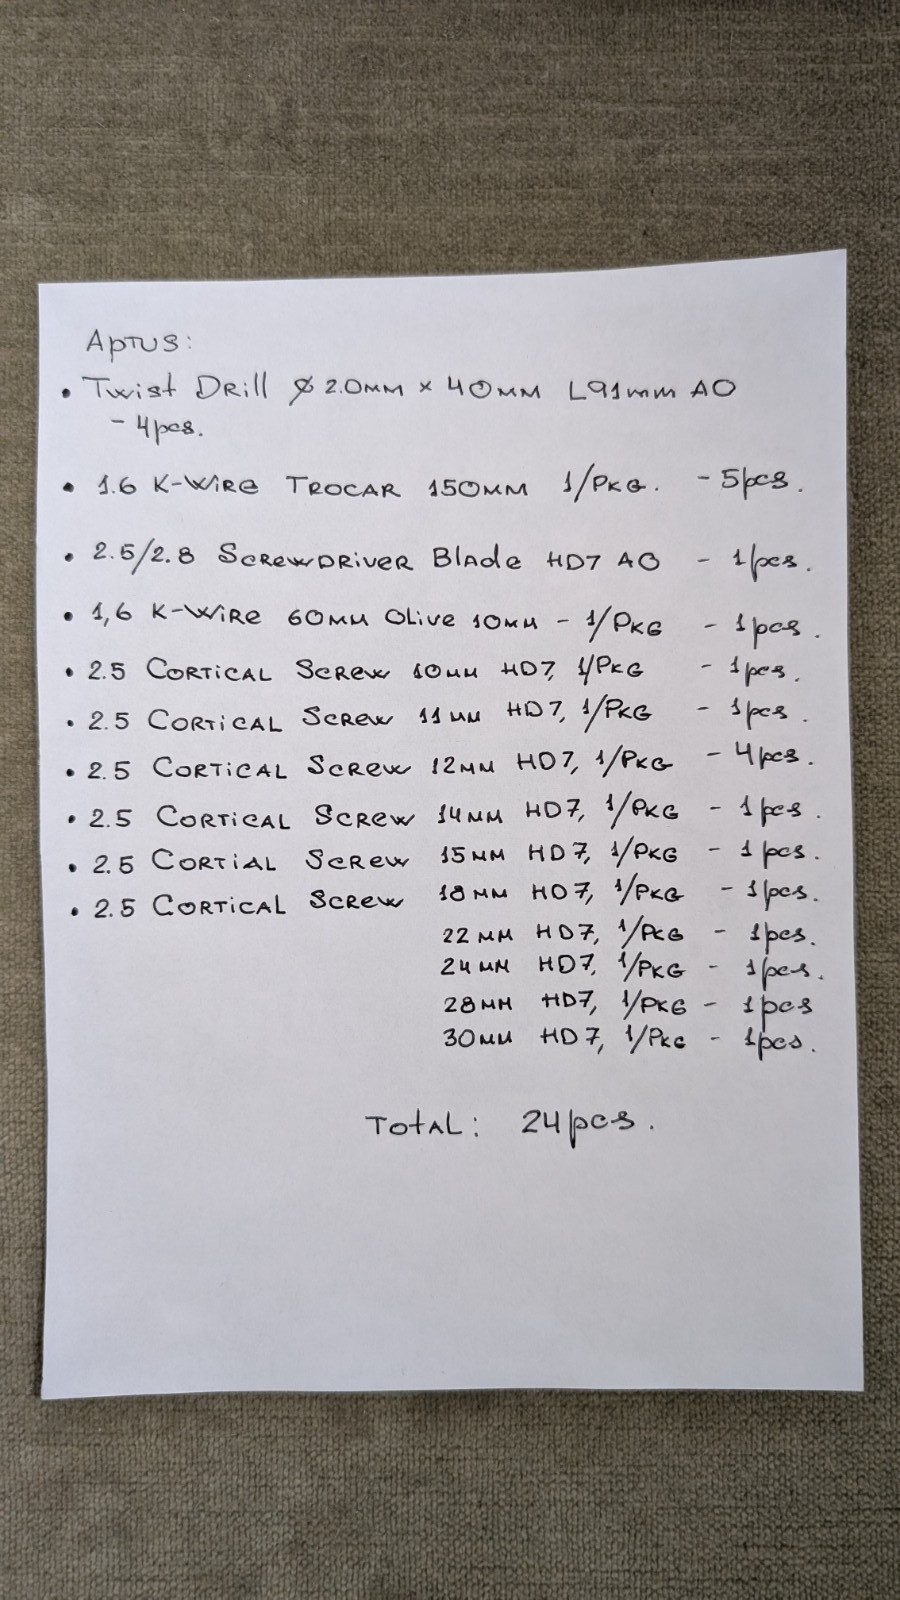 Aptus:
• Twist Drill ⌀ 2.0mm × 40mm L91mm AO
- 4pcs.
• 1.6 K-Wire Trocar 150mm 1/Pkg. - 5pcs.
• 2.5/2.8 Screwdriver Blade HD7 AO - 1pcs.
• 1,6 K-Wire 60mm Olive 10mm - 1/Pkg - 1pcs.
• 2.5 Cortical Screw 10mm HD7, 1/Pkg - 1pcs.
• 2.5 Cortical Screw 11mm HD7, 1/Pkg - 1pcs.
• 2.5 Cortical Screw 12mm HD7, 1/Pkg - 4pcs.
• 2.5 Cortical Screw 14mm HD7, 1/Pkg - 1pcs.
• 2.5 Cortial Screw 15mm HD7, 1/Pkg - 1pcs.
• 2.5 Cortical Screw 18mm HD7, 1/Pkg - 1pcs.
22mm HD7, 1/Pkg - 1pcs.
24mm HD7, 1/Pkg - 1pcs.
28mm HD7, 1/Pkg - 1pcs
30mm HD7, 1/Pkg - 1pcs.
Total: 24pcs.